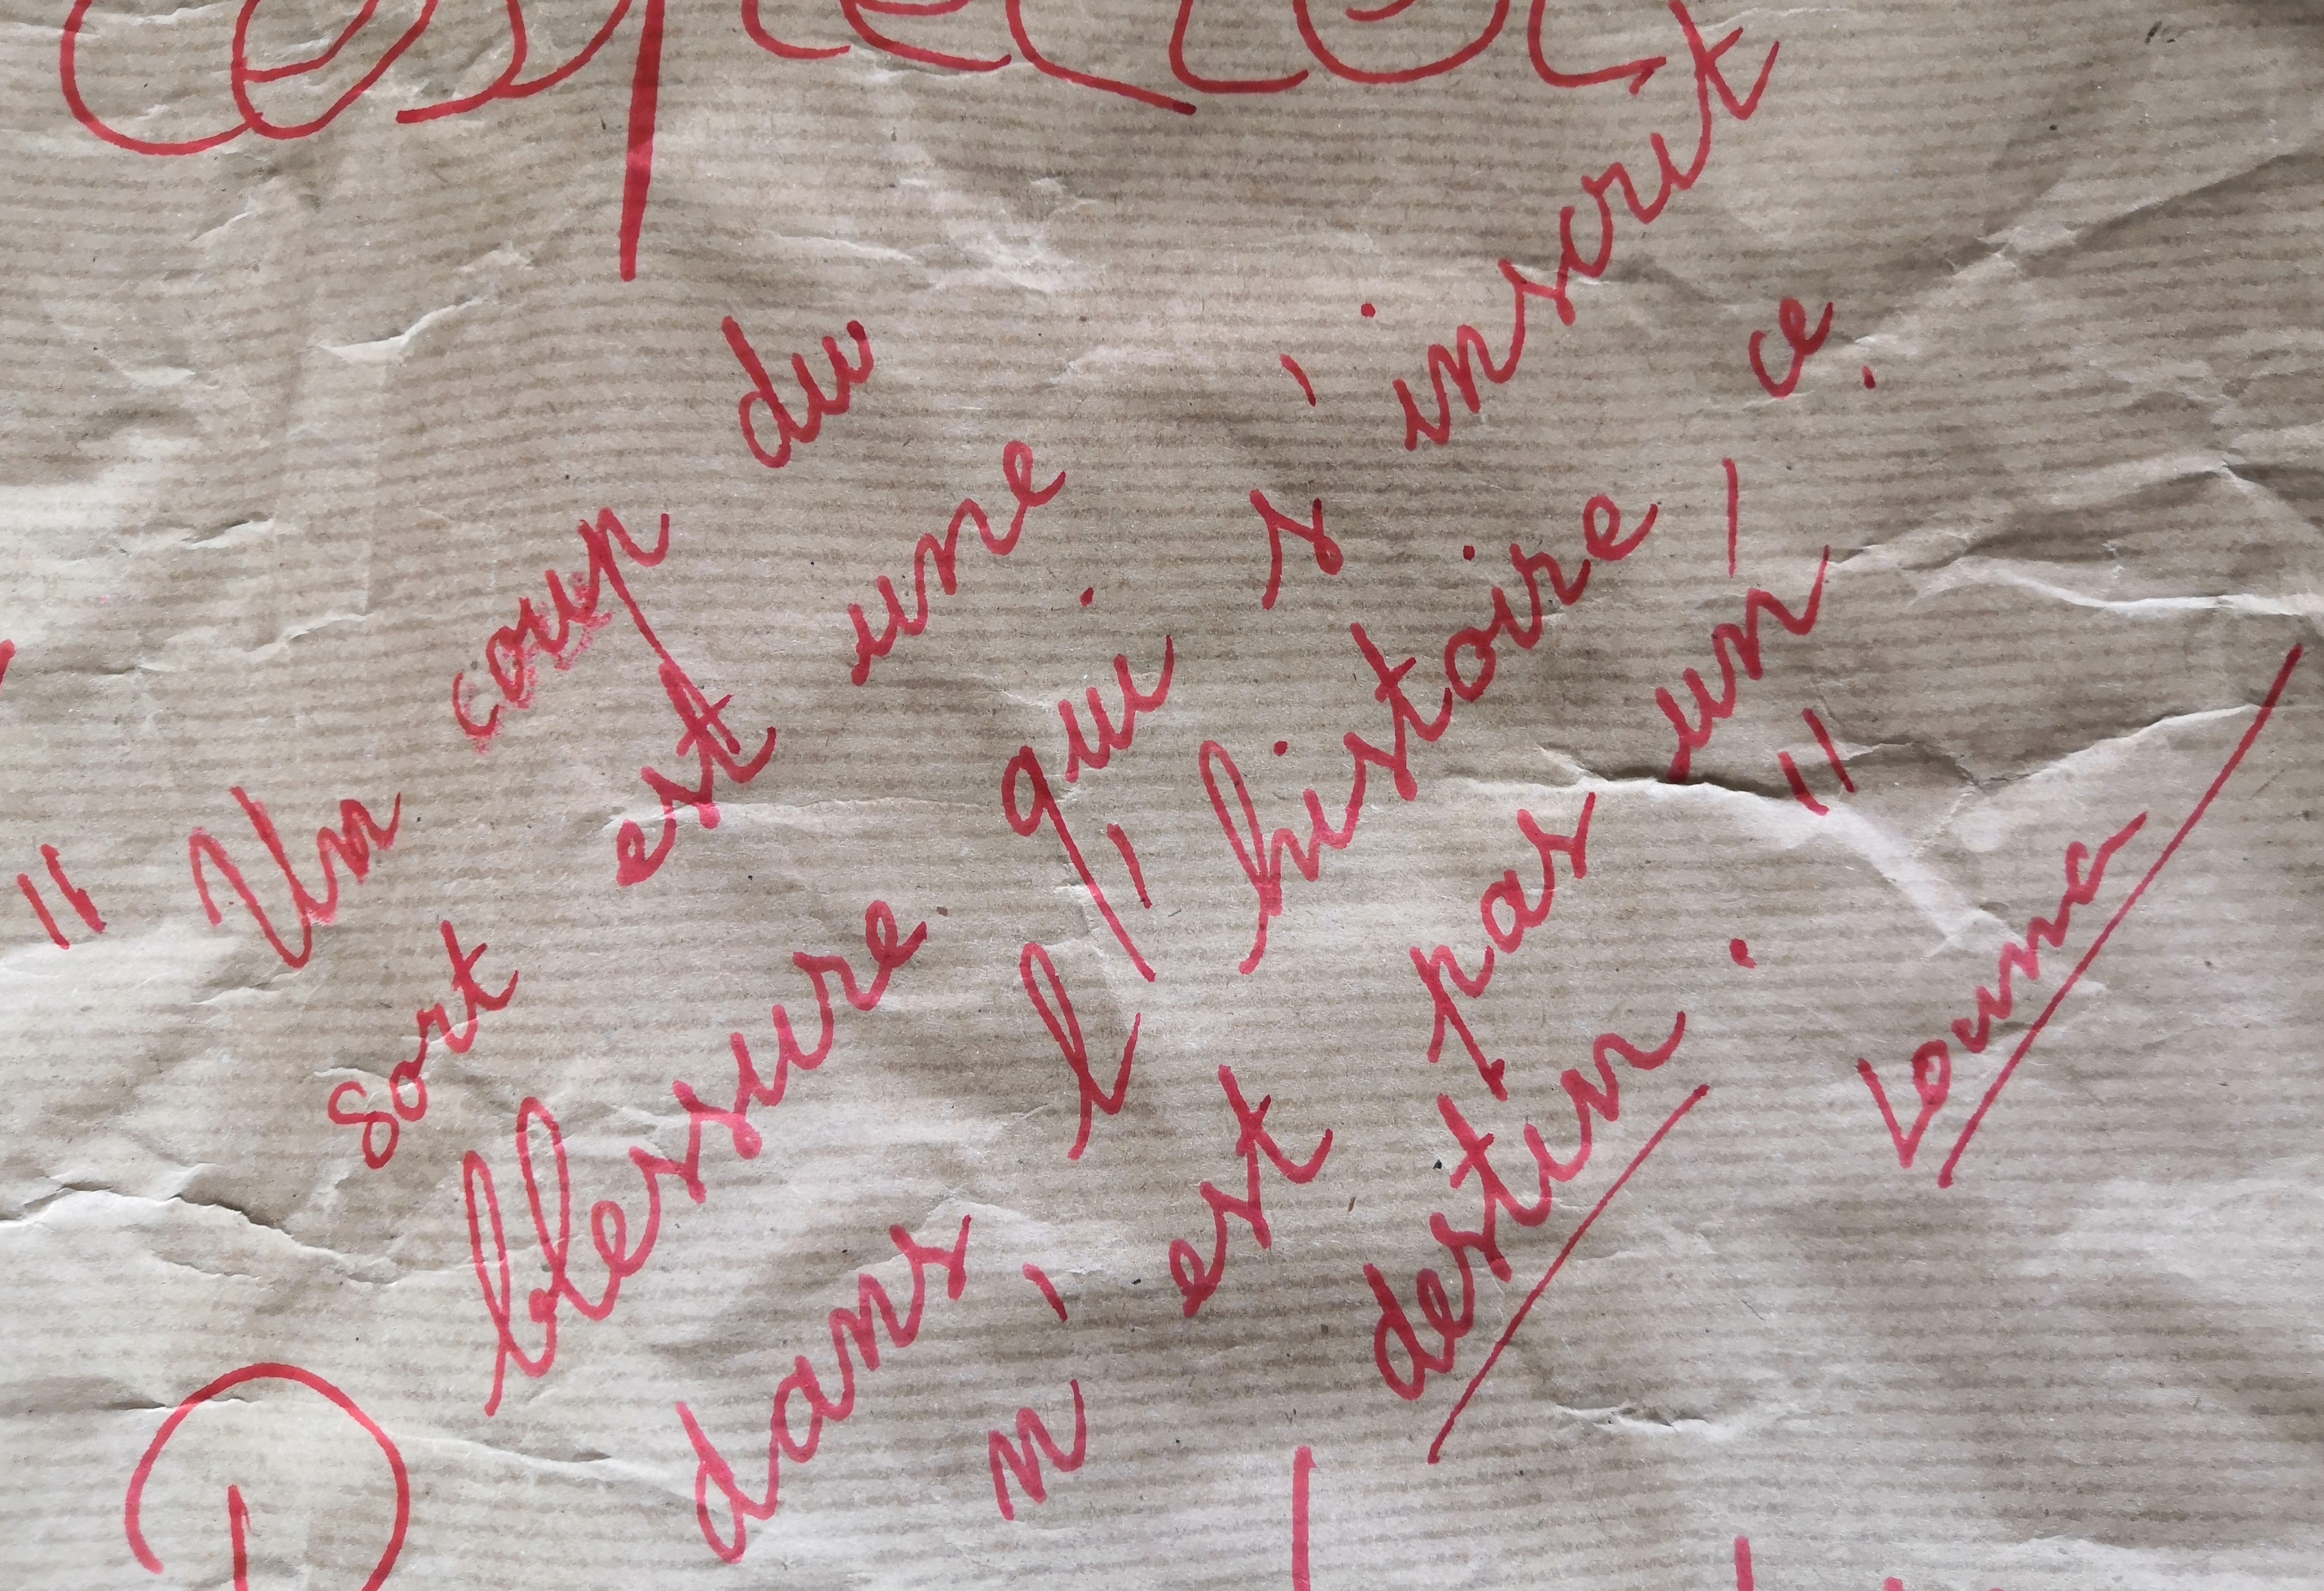 "Un coup du
sort est une
blessure qui s'inscrit
dans l'histoire, ce
n'est pas un
destin."
Louna